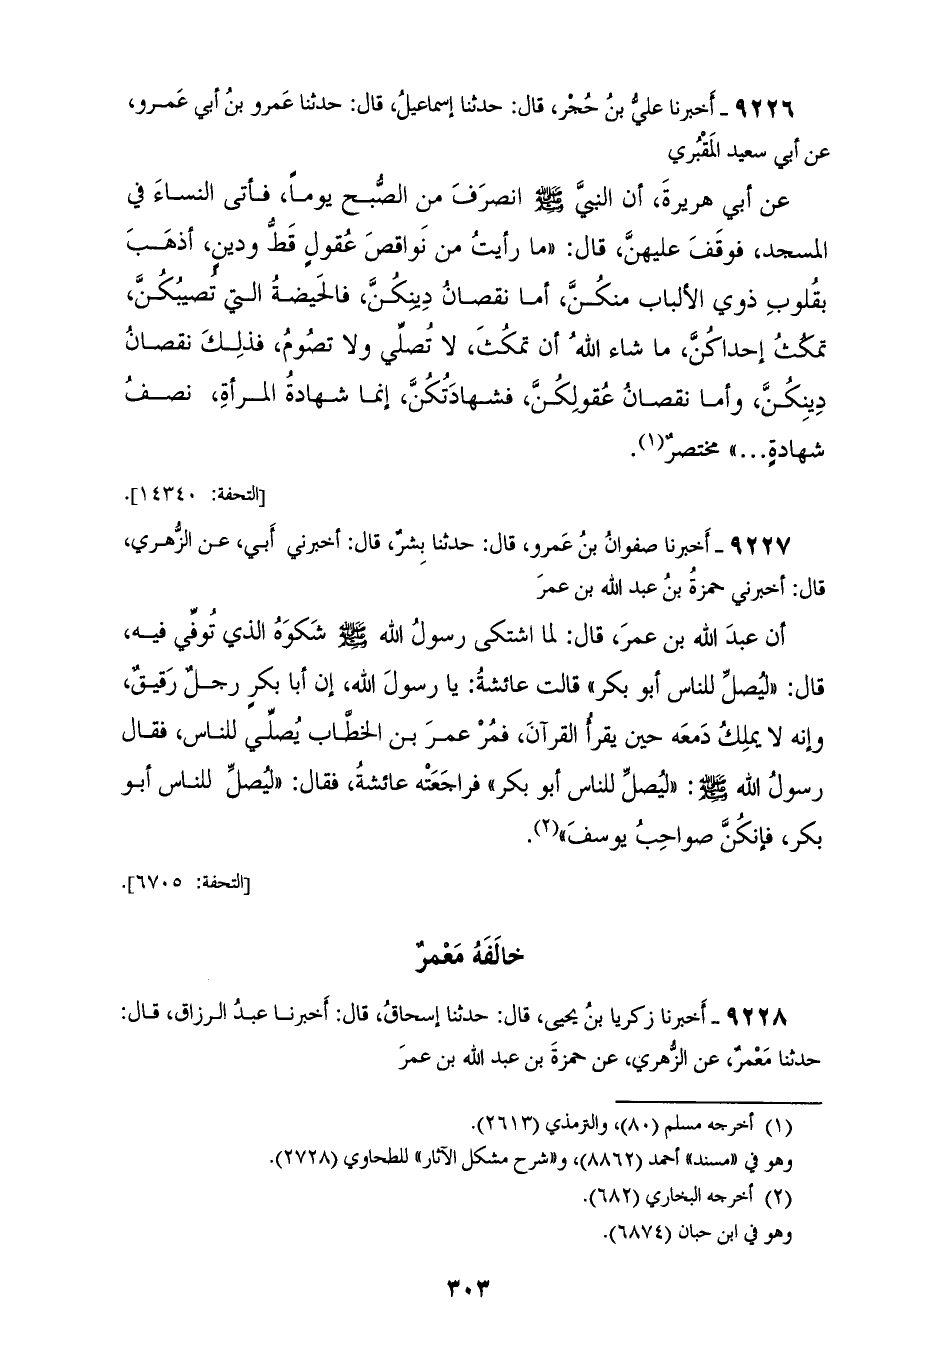 ٩٢٢٦ ـ أَخبرنا عليُّ بنُ حُجْر، قال: حدثنا إسماعيلُ، قال: حدثنا عَمرو بنُ أبي عَمـرو،
عن أبي سعيد المَقْبُري
عن أبي هريرةَ، أن النبيَّ ﷺ انصرَفَ من الصُّبـح يوماً، فـأتى النسـاءَ في
المسجد، فوقَفَ عليهنَّ، قال: «ما رأيتُ من نَواقصَ عُقولٍ قَطُّ ودينٍ، أذهَـبَ
بقُلوبِ ذوي الألباب منكُـنَّ، أمـا نقصـانُ دِينِكُـنَّ، فالحَيضـةُ الـتي تُصيبُكُـنَّ،
تمكُثُ إحداكُنَّ، ما شاء اللهُ أن تمكُثَ، لا تُصلِّي ولا تصُومُ، فذلِـكَ نقصـانُ
دِينِكُـنَّ، وأمـا نقصـانُ عُقولِكُـنَّ، فشـهادَتُكُنَّ، إنمـا شـهادةُ المـرأةِ، نصـفُ
شهادةٍ...» مختصرٌ(١).
[التحفة: ١٤٣٤٠].
٩٢٢٧ ـ أَخبرنا صفوانُ بنُ عَمرو، قال: حدثنا بِشرٌ، قال: أخبرني أَبـي، عـن الزُّهـري،
قال: أخبرني حمزةُ بنُ عبد الله بن عمرَ
أن عبدَ الله بن عمرَ، قال: لما اشتكى رسولُ الله ﷺ شَكوَهُ الذي تُوفِّي فيـه،
قال: «لِيُصلِّ للناس أبو بكر» قالت عائشةُ: يا رسولَ الله، إن أبا بكرٍ رجـلٌ رَقيـقٌ،
وإنه لا يملِكُ دَمعَه حين يقرأُ القرآنَ، فمُرْ عمـرَ بـن الخطَّـاب يُصلِّـي للنـاس، فقـال
رسولُ الله ﷺ: «لِيُصلِّ للناس أبو بكر» فراجَعَتْه عائشةُ، فقال: «لِيُصلِّ للنـاس أبـو
بكر، فإنكُنَّ صواحِبُ يوسفَ»(٢).
[التحفة: ٦٧٠٥].
خالَفَهُ مَعْمرٌ
٩٢٢٨ ـ أَخبرنا زكريا بنُ يحيى، قال: حدثنا إسحاقُ، قال: أَخبرنـا عبـدُ الـرزاق، قـال:
حدثنا مَعْمرٌ، عن الزُّهري، عن حمزةَ بن عبد الله بن عمرَ
(١) أخرجه مسلم (٨٠)، والترمذي (٢٦١٣).
وهو في «مسند» أحمد (٨٨٦٢)، و«شرح مشكل الآثار» للطحاوي (٢٧٢٨).
(٢) أخرجه البخاري (٦٨٢).
وهو في ابن حبان (٦٨٧٤).
٣٠٣